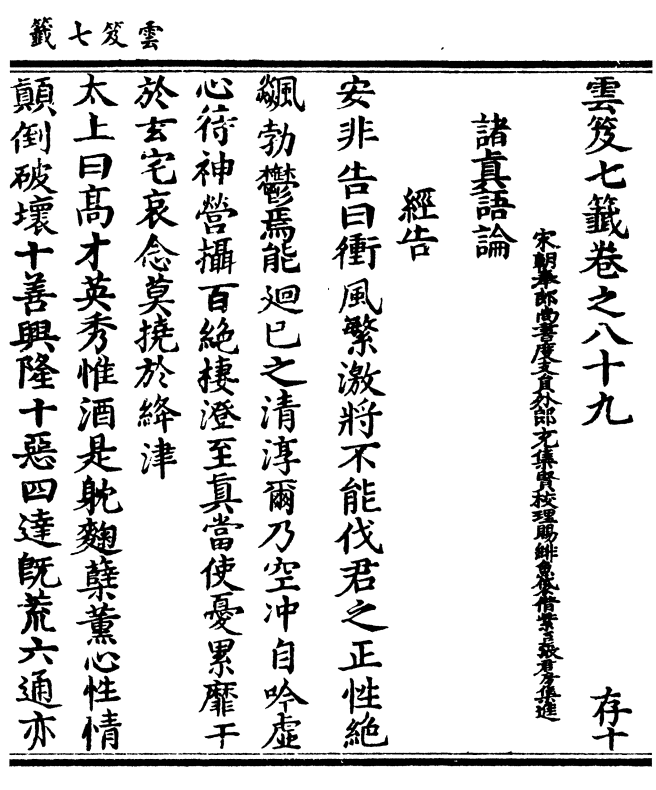 雲笈七籤
雲笈七籤卷之八十九 存十
宋朝奉郎尚書度支員外郎充集賢校理賜緋魚袋借紫臣張君房集進
諸真語論
經告
安非告曰衝風繁激將不能伐君之正性絕
飆勃鬱焉能迴已之清淳爾乃空冲自吟虛
心待神營攝百絕棲澄至真當使憂累靡干
於玄宅哀念莫撓於絳津
太上曰高才英秀惟酒是躭麴蘖薰心性情
顛倒破壞十善興隆十惡四達既荒六通亦